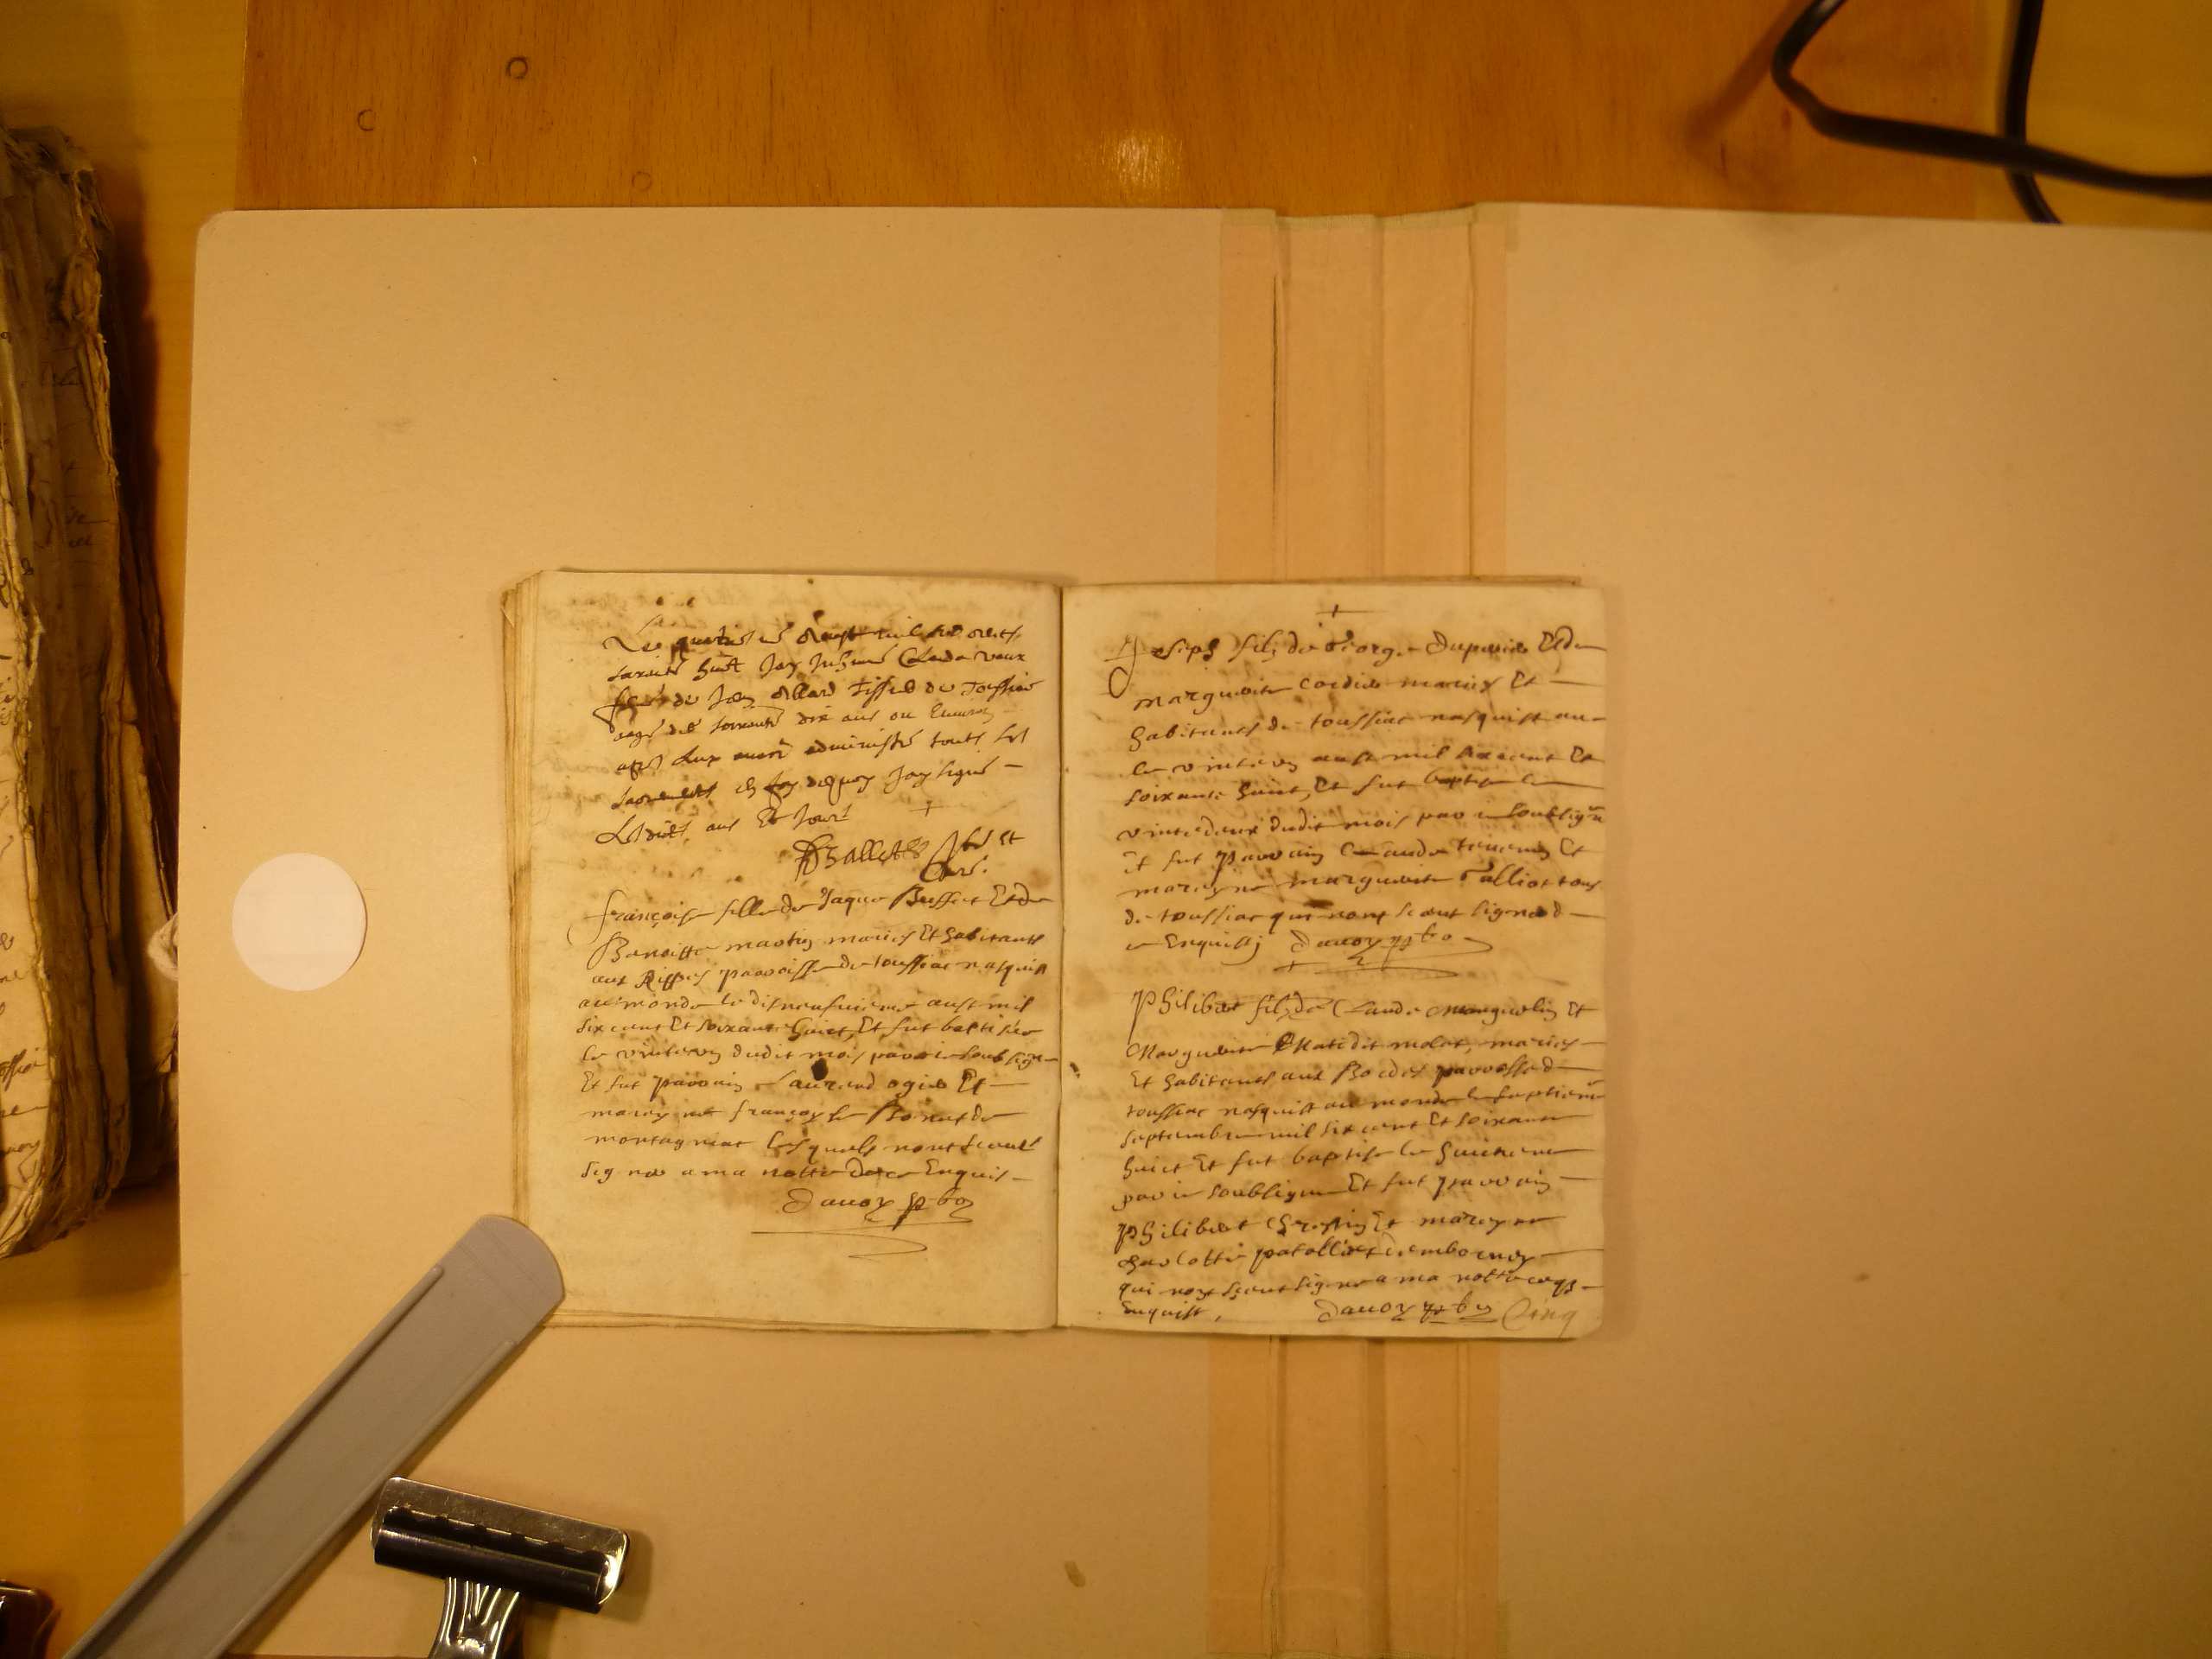 Le quatriesme d'aoust mil six cents
soixante huit Jay Inhumé Clauda vaux
feme de Jean Allard Tissie de Toissia
aagé de soixante dix ans ou environ
apres luy avoir administré touts les
sacrements en foy dequoy Jay signé —
Lesdits, ans Et Jour
Curé
françoise fille de Jaque Buffet Et de
Benoiste martin mariés Et habitants
aux Rippes parroisse de toussiac nasquit
au monde le disneufuieme aust mil
six cent Et soixante huict, Et fut baptisée
le vinteun dudit mois par ie soubsigne
Et fut parrain Laurand ogier Et —
mareyne françoyse Bonat de
montagniat lesquels nont sceut
signer a ma notte de ce Enquis —
Dauoy pbr
Joseph filz de George Dupuis Et de
marguerite cordier mariez Et —
habitants de toussiac nasquist au
le vinteun aust mil six cent Et
soixante huict, Et fut baptise le
vintedeux dudit mois par ie soubsigne
Et fut parrain Claude Et
mareyne marguerite Talliot tous
de toussiac qui nont sceut signer d —
e Enquis Dauoy pbr
Philibert filz de Claude Et
Marguerite dit molat, mariés —
Et habitants aux Bordes parroisse d —
toussiac nasquist au monde le septieme
septembre mil six cent Et soixante
huict Et fut baptise le huictieme
par ie soubsigne Et fut parrain —
Philibert Et mareyne
charlotte
qui nont sceut signer a ma notte
Enquist, Dauoy pbr Cinq